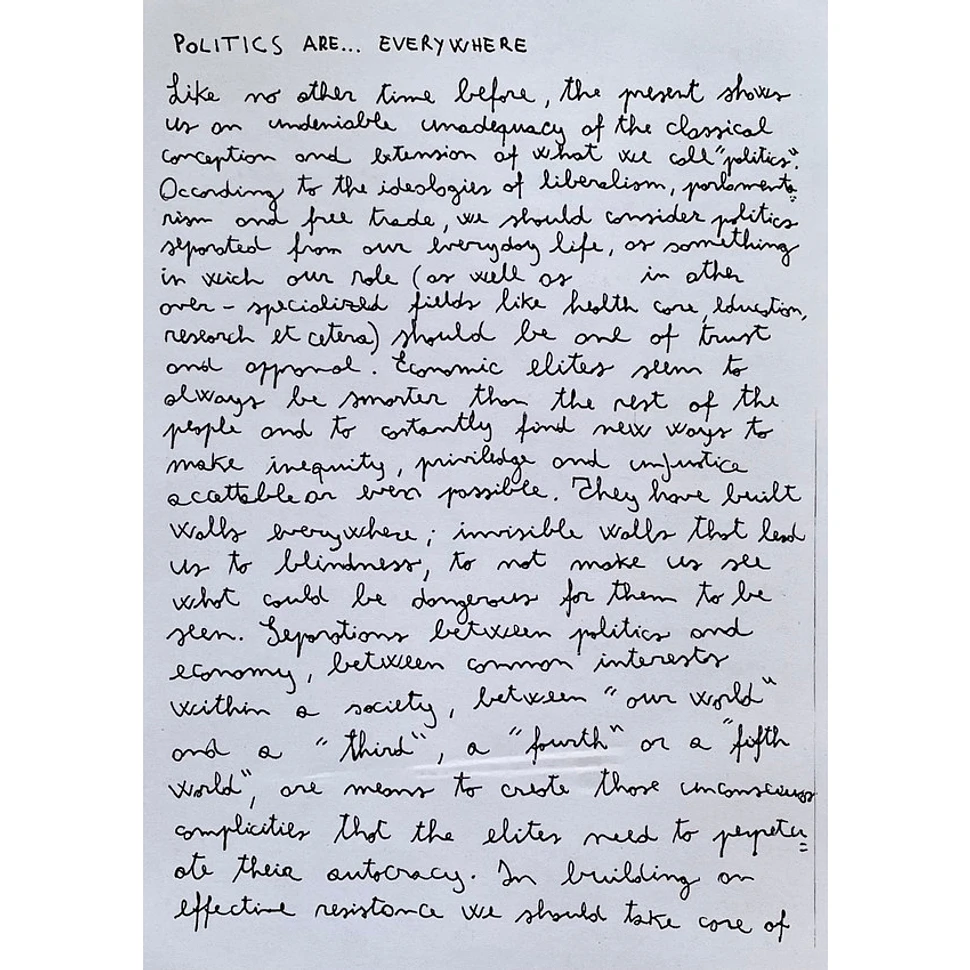 POLITICS ARE... EVERYWHERE
Like no other time before, the present shows
us an undeniable unadequacy of the classical
conception and extension of what we call "politics".
According to the ideologies of liberalism, parlamenta=
rism and free trade, we should consider politics
separated from our everyday life, as something
in wich our role (as well as in other
over-specialized fields like health care, education,
research et cetera) should be one of trust
and approval. Economic elites seem to
always be smarter than the rest of the
people and to costantly find new ways to
make inequity, priviledge and unjustice
accattable or even possible. They have built
walls everywhere; invisible walls that lead
us to blindness, to not make us see
what could be dangerous for them to be
seen. Separations between politics and
economy, between common interests
within a society, between "our world"
and a "third", a "fourth" or a "fifth
world", are means to create those unconscious
complicities that the elites need to perpetu=
ate their autocracy. In building an
effective resistance we should take care of